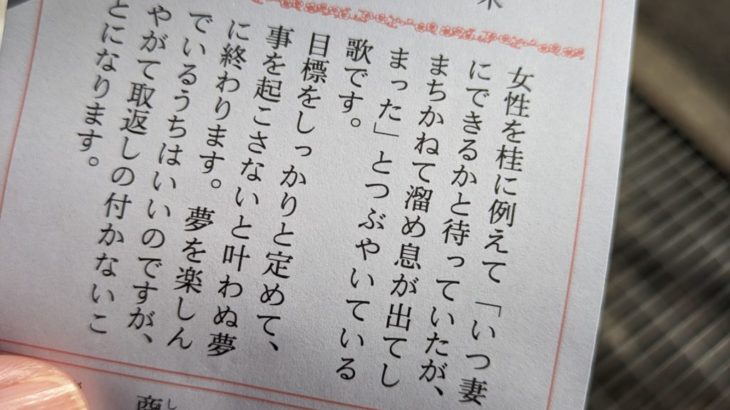 女性を桂に例えて「いつ妻
にできるかと待っていたが、
まちかねて溜め息が出てし
まった」とつぶやいている
歌です。
目標をしっかりと定めて、
事を起こさないと叶わぬ夢
に終わります。夢を楽しん
でいるうちはいいのですが、
やがて取返しの付かないこ
とになります。